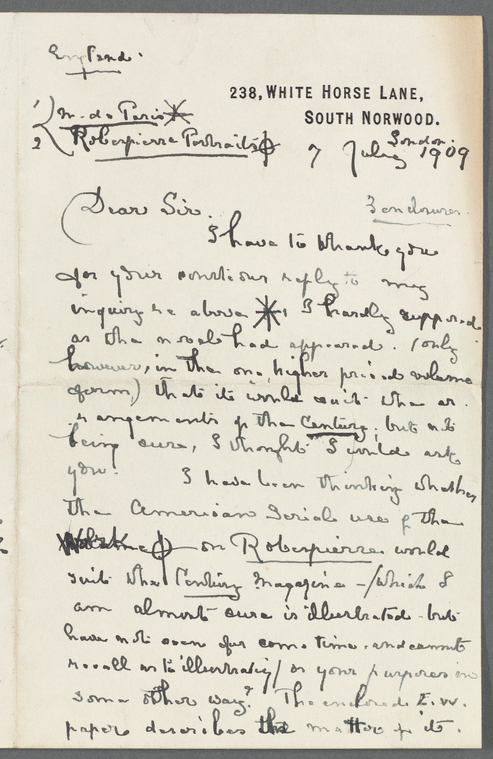 England.
238, WHITE HORSE LANE,
SOUTH NORWOOD.
London.
1 M. de Paris
2 Robespierre Portraits
7 July 1909
3 enclosures.
Dear Sir.
I have to thank you
for your courteous reply to my
inquiry re above I hardly supposed
as the novel had appeared. (only
however, in the one, higher priced volume
form) that it would suit the ar-
rangements of the Century, but not
being sure, I thought I would ask
you. I have been thinking whether
the American Serial use of the
on Robespierre would
suit the Century Magazine - (which I
am almost sure is illustrated - but
have not seen for some time and cannot
recall as to illustrating) or your purposes in
some other way? The enclosed E.W.
paper describes the matter of it.